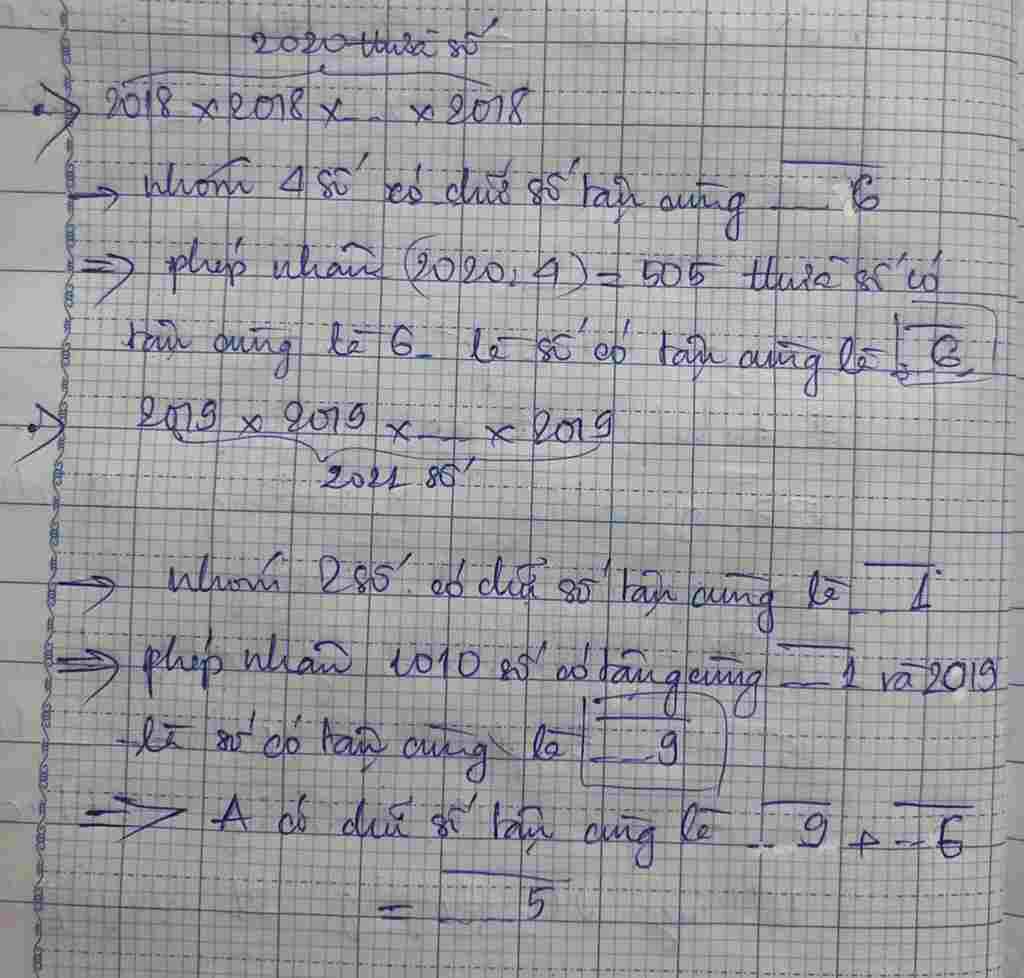 2020 thừa số
2018 x 2018 x ... x 2018
→ nhóm 4 số có chữ số tận cùng ...6
⇒ phép nhân (2020 : 4) = 505 thừa số có
tận cùng là 6 là số có tận cùng là ...6
2019 x 2019 x ... x 2019
2021 số
→ nhóm 2 số có chữ số tận cùng là ...1
⇒ phép nhân 1010 số có tận cùng ...1 và 2019
là số có tận cùng là ...9
⇒ A có chữ số tận cùng là ...9 + ...6
= ...5